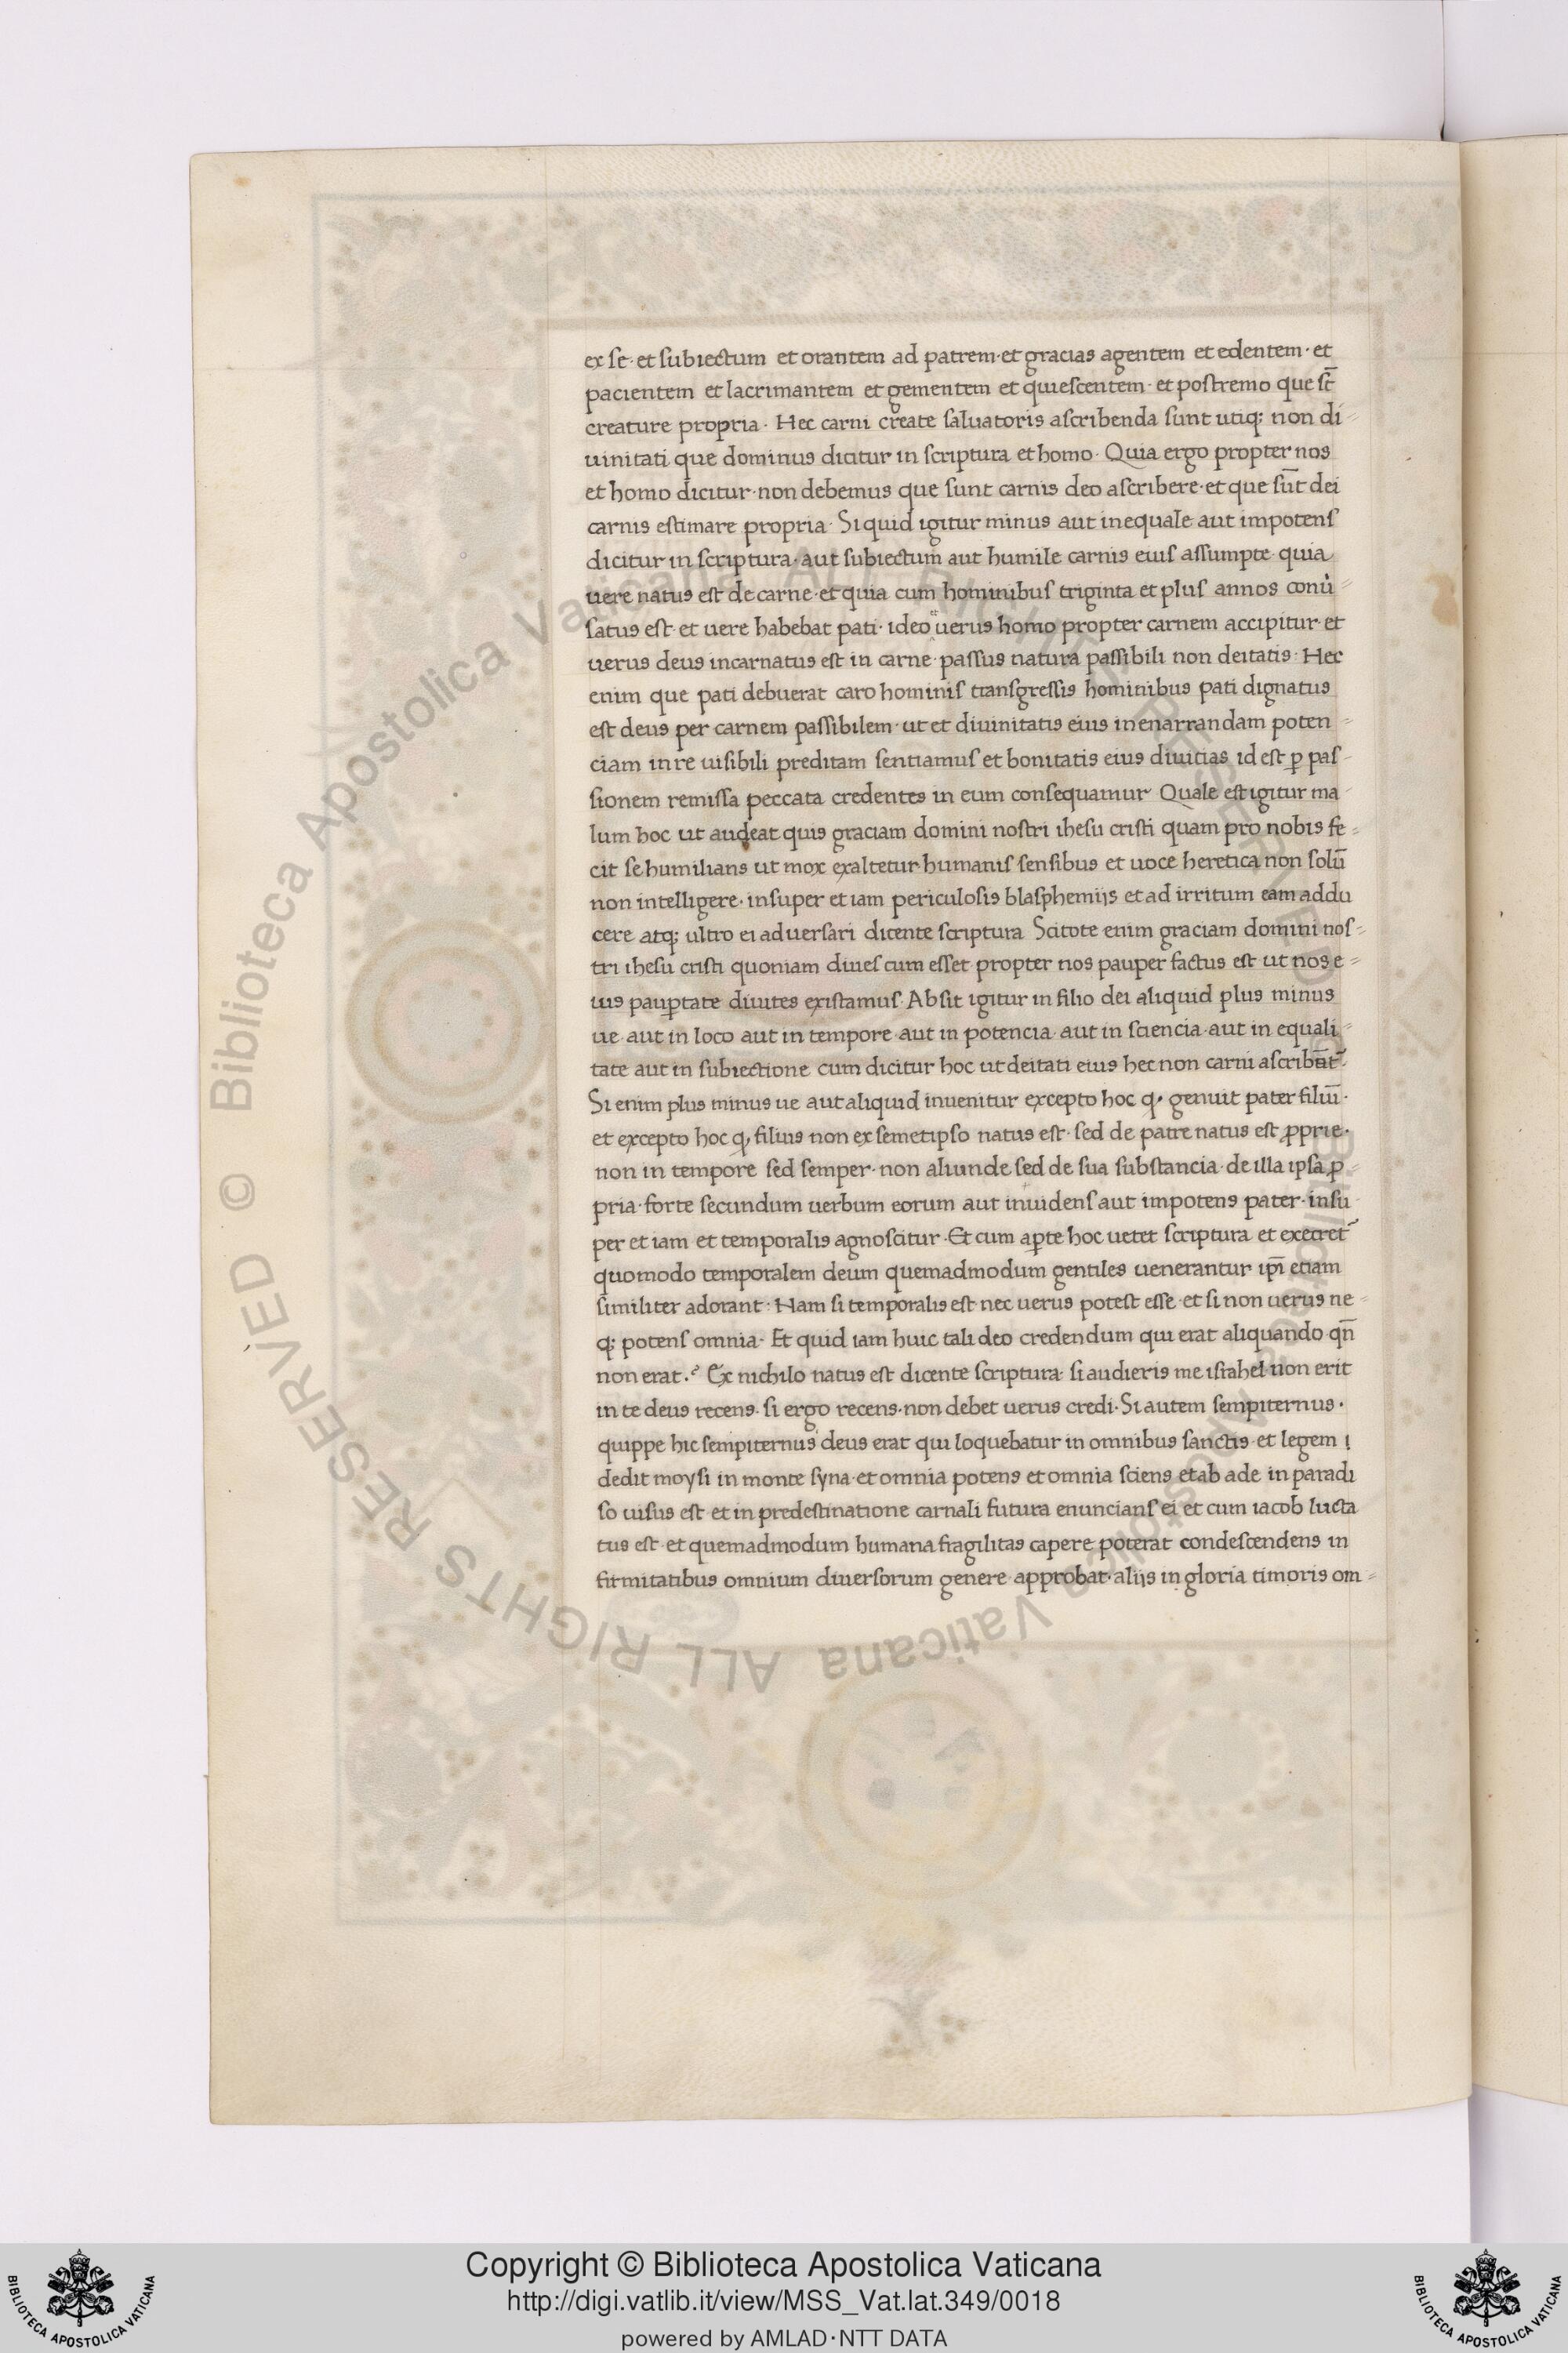 ex se· et subiectum et orantem ad patrem· et gracias agentem et edentem· et
pacientem et lacrimantem et gementem et quiescentem· et postremo que st̄
creature propria· Hec carni create saluatoris ascribenda sunt utiqꝫ non di
uinitati que dominus dicitur in scriptura et homo· Quia ergo propter nos
et homo dicitur· non debemus que sunt carnis deo ascribere· et que sūt dei
carnis estimare propria· Si quid igitur minus aut inequale aut impotens
dicitur in scriptura· aut subiectum aut humile carnis eius assumpte· quia
uere natus est de carne· et quia cum hominibus triginta et plus annos conu̓
satus est· et uere habebat pati· ideo uerus homo propter carnem accipitur· et
uerus deus incarnatus est in carne· passus natura passibili non deitatis· Hec
enim que pati debuerat caro hominis transgressis hominibus pati dignatus
est deus per carnem passibilem· ut et diuinitatis eius inenarrandam poten
ciam in re uisibili preditam sentiamus et bonitatis eius diuicias id est ꝑ pas
sionem remissa peccata credentes in eum consequamur· Quale est igitur ma
lum hoc ut audeat quis graciam domini nostri ihesu cristi quam pro nobis fe
cit se humilians ut mox exaltetur humanis sensibus et uoce heretica non solū
non intelligere· insuper et iam periculosis blasphemijs et ad irritum eam addu
cere atqꝫ ultro ei aduersari dicente scriptura Scitote enim graciam domini nos
tri ihesu cristi quoniam diues cum esset propter nos pauper factus est ut nos e
ius pauꝑtate diuites existamus· Absit igitur in filio dei aliquid plus minus
ue aut in loco aut in tempore· aut in potencia· aut in sciencia· aut in equali
tate aut in subiectione cum dicitur hoc ut deitati eius hec non carni ascribūt᷑·
Si enim plus minus ue aut aliquid inuenitur excepto hoc ꝙ genuit pater filiū·
et excepto hoc ꝙ filius non ex semetipso natus est· sed de patre natus est ꝓprie·
non in tempore sed semper· non aliunde sed de sua substancia· de illa ipsa ꝓ
pria· forte secundum uerbum eorum aut inuidens aut impotens pater· insu
per et iam et temporalis agnoscitur· Et cum aꝑte hoc uetet scriptura et execret᷑
quomodo temporalem deum quemadmodum gentiles uenerantur ip̄i etiam
similiter adorant· Nam si temporalis est nec uerus potest esse· et si non uerus ne
qꝫ potens omnia· Et quid iam huic tali deo credendum qui erat aliquando qn̄
non erat·? Ex nichilo natus est dicente scriptura· si audieris me israhel non erit
in te deus recens· si ergo recens· non debet uerus credi· Si autem sempiternus·
quippe hic sempiternus deus erat qui loquebatur in omnibus sanctis· et legem
dedit moysi in monte syna· et omnia potens et omnia sciens et ab ade in paradi
so uisus est et in predestinatione carnali futura enuncians ei et cum iacob lucta
tus est· et quemadmodum humana fragilitas capere poterat condescendens in
firmitatibus omnium diuersorum genere approbat· alijs in gloria timoris om
© Biblioteca Apostolica Vaticana ALL RIGHTS RESERVED
© Biblioteca Apostolica Vaticana ALL RIGHTS RESERVED
Copyright © Biblioteca Apostolica Vaticana
http://digi.vatlib.it/view/MSS_Vat.lat.349/0018
powered by AMLAD·NTT DATA
BIBLIOTECA APOSTOLICA VATICANA
BIBLIOTECA APOSTOLICA VATICANA